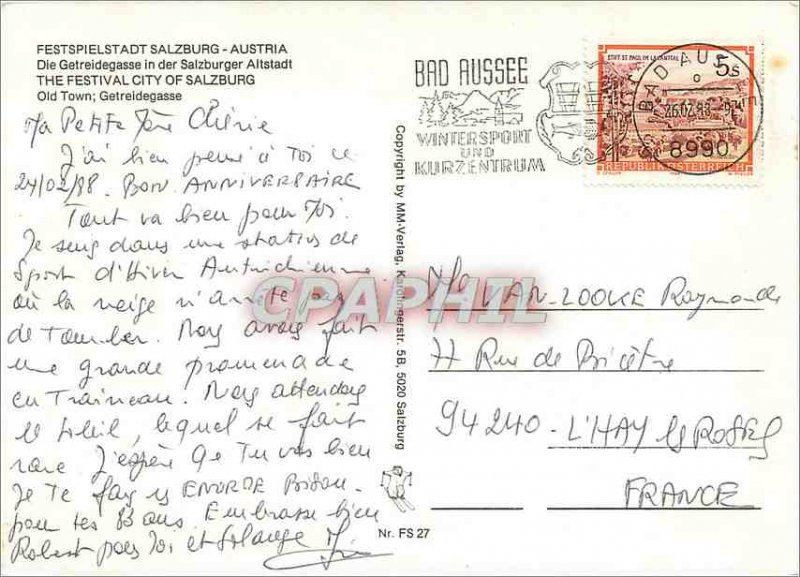 FESTSPIELSTADT SALZBURG - AUSTRIA
Die Getreidegasse in der Salzburger Altstadt
THE FESTIVAL CITY OF SALZBURG
Old Town; Getreidegasse
Ma Petite Mère Chérie
J'ai bien pensé à Toi le
24/02/88. BON ANNIVERSAIRE
Tout va bien pour moi.
Je suis dans une station de
Sport d'Hiver Autrichienne
où la neige n'arrête pas
de Tomber. Nous avons fait
une grande promenade
en Traineau. Nous attendons
le Soleil, lequel se fait
rare J'espère que Tu vas bien
Je Te fais un ENORME Bisou
pour tes 83 ans. Embrasse bien
Robert pour Toi et Solange
Copyright by MM-Verlag, Karolingerstr. 5B, 5020 Salzburg
Nr. FS 27
BAD AUSSEE
WINTERSPORT
UND
KURZENTRUM
STIFT ST. PAUL IM LAVANTTAL
5s
REPUBLIK ÖSTERREICH
BAD AUSSEE
26.02.88
8990
CPAPHIL
VAN-LOOKE Raymonde
77 Rue de Bicêtre
94240 - L'HAY les ROSES
FRANCE